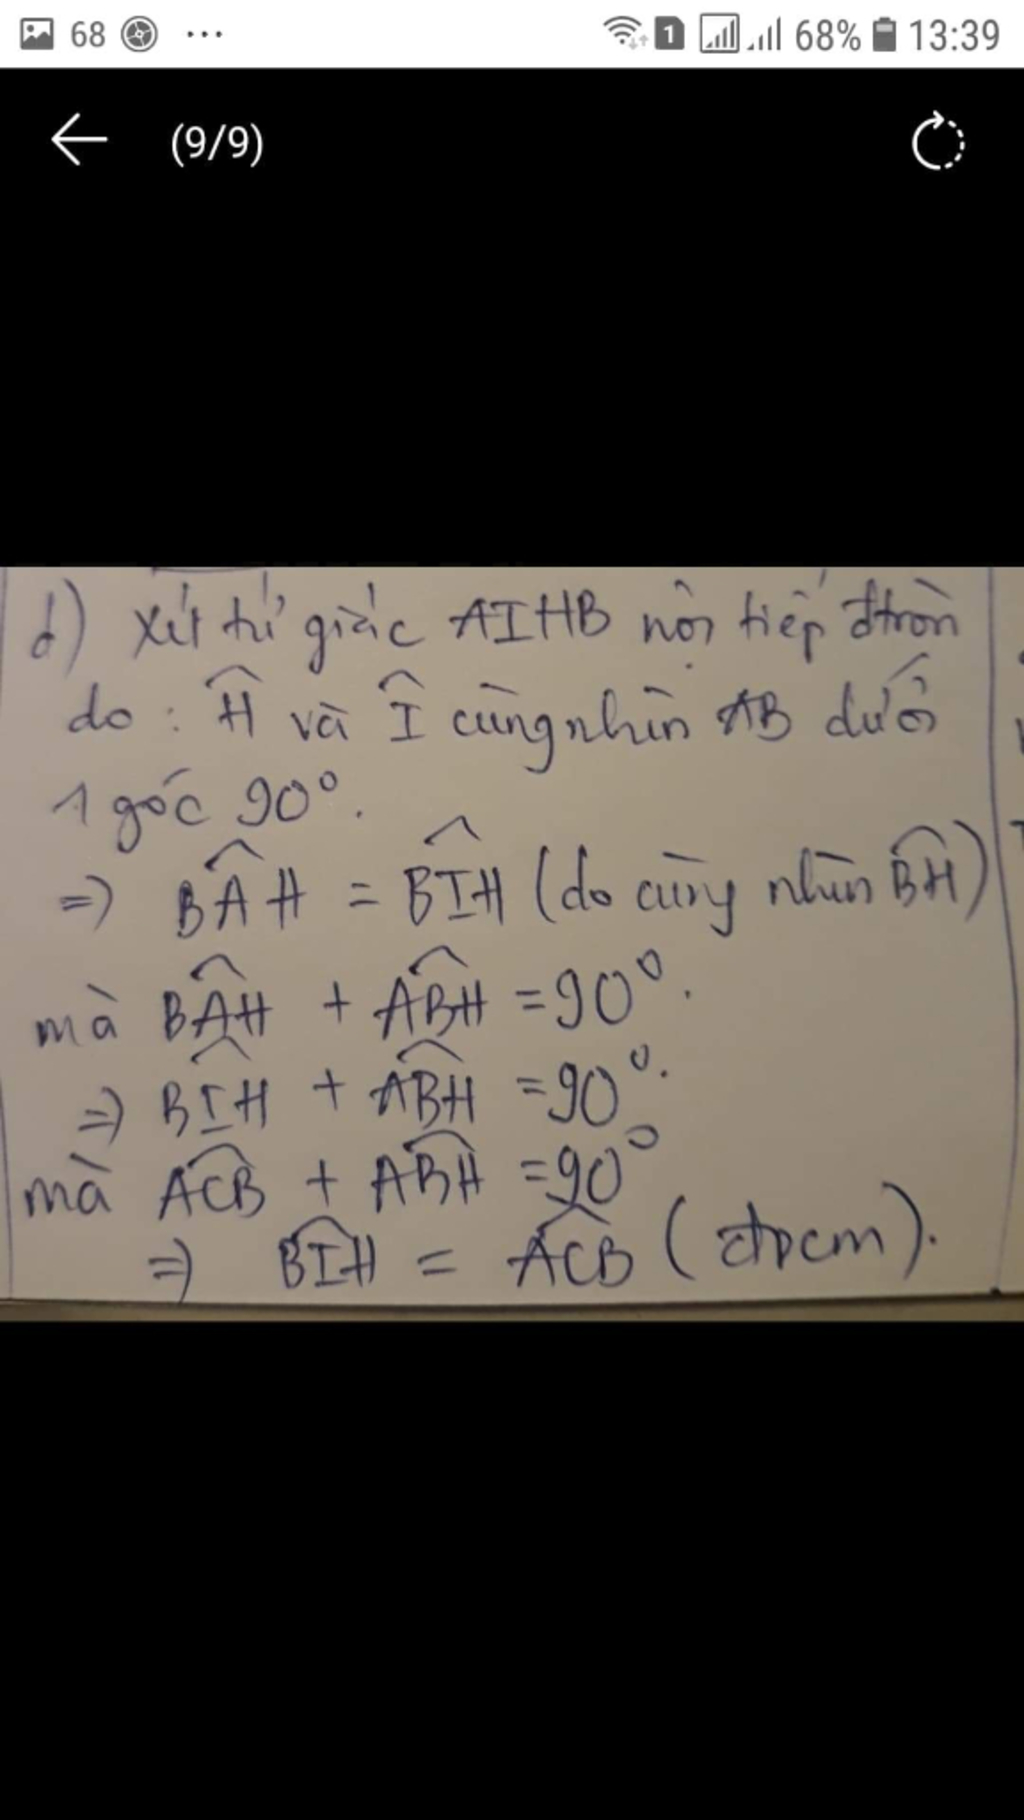 68 ... 1 68% 13:39
(9/9)
d) Xét tứ giác AIHB nội tiếp đtròn
do : Ĥ và Î cùng nhìn AB dưới
1 góc 90°.
=> BÂH = BÎH (do cùng nhìn BH)
mà BÂH + AB̂H = 90°.
=> BÎH + AB̂H = 90°.
mà AĈB + AB̂H = 90°
=> BÎH = AĈB (đpcm).